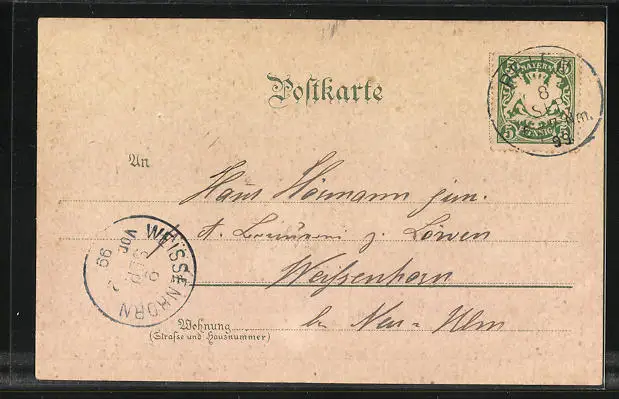 Postkarte
BAYERN
5 5
PFENNIG
8
SEP
99
An
Hans Hörmann jun.
z. Löwen
Weissenhorn
WEISSENHORN
VOR
9
SEP
99
Wohnung
(Strasse und Hausnummer)
b. Neu-Ulm